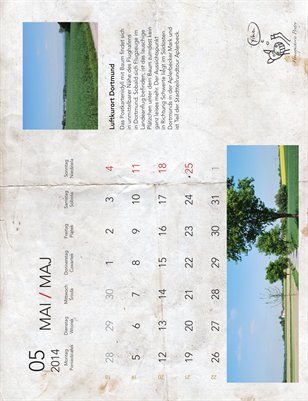 05
2014
MAI / MAJ
Montag Dienstag Mittwoch Donnerstag Freitag Samstag Sonntag
Poniedziałek Wtorek Środa Czwartek Piątek Sobota Niedziela
28 29 30 1 2 3 4
5 6 7 8 9 10 11
12 13 14 15 16 17 18
19 20 21 22 23 24 25
26 27 28 29 30 31 1
Luftkurort Dortmund
Das Postkartenidyll mit Baum findet sich
in unmittelbarer Nähe des Flughafens
in Dortmund. Sobald sich Flugzeuge im
Landeanflug befinden, ist das lauschige
Plätzchen unter dem Baum zumindest kein
ganz leises mehr. Der Aussichtspunkt
in Richtung Schwerte liegt im Südosten
Dortmunds in der Aplerbecker Mark und
ist Teil der Stadtrandtour Aplerbeck.